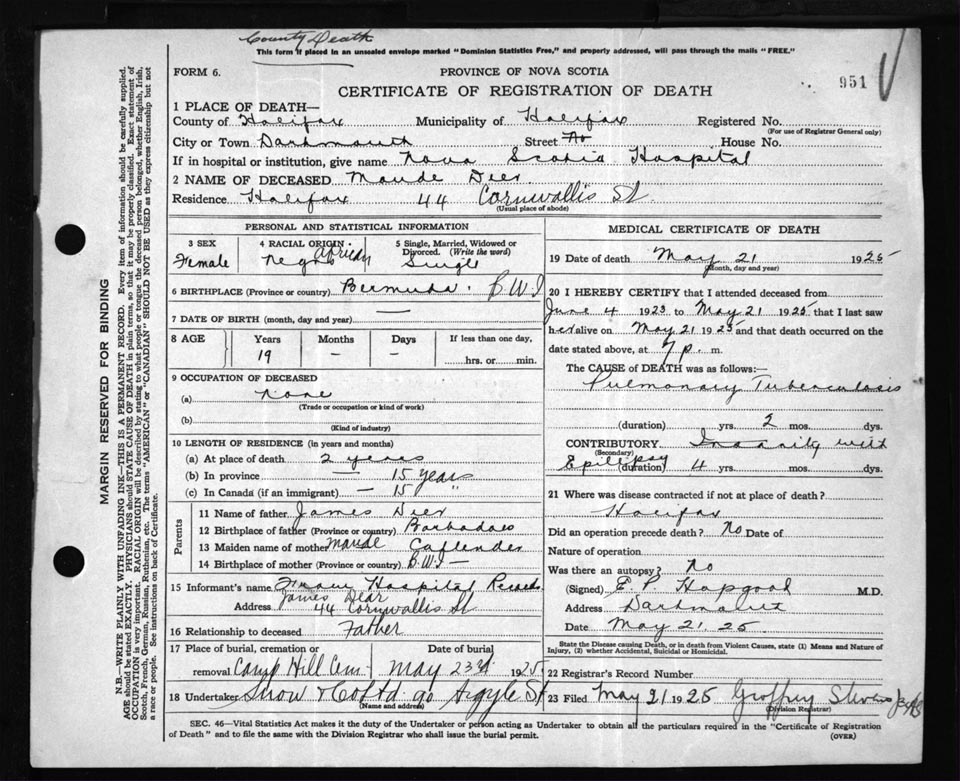 County Death
This form if placed in an unsealed envelope marked "Dominion Statistics Free," and properly addressed, will pass through the mails "FREE."
FORM 6.
PROVINCE OF NOVA SCOTIA
951
CERTIFICATE OF REGISTRATION OF DEATH
1 PLACE OF DEATH—
County of Halifax Municipality of Halifax Registered No.
(For use of Registrar General only)
City or Town Dartmouth Street No House No.
If in hospital or institution, give name Nova Scotia Hospital
2 NAME OF DECEASED Maude Deer
Residence Halifax 44 Cornwallis St.
(Usual place of abode)
PERSONAL AND STATISTICAL INFORMATION
3 SEX
Female
4 RACIAL ORIGIN
Negro African
5 Single, Married, Widowed or Divorced. (Write the word)
Single
6 BIRTHPLACE (Province or country) Bermuda. B.W.I
7 DATE OF BIRTH (month, day and year) —
8 AGE Years Months Days If less than one day,
19 – – hrs. or min.
9 OCCUPATION OF DECEASED
(a) None
(Trade or occupation or kind of work)
(b)
(Kind of industry)
10 LENGTH OF RESIDENCE (in years and months)
(a) At place of death 2 years
(b) In province — 15 years
(c) In Canada (if an immigrant) — 15 "
Parents
11 Name of father James Deer
12 Birthplace of father (Province or country) Barbadoes
13 Maiden name of mother Maude Callender
14 Birthplace of mother (Province or country) B.W.I —
15 Informant's name From Hospital Records
James Dear
Address 44 Cornwallis St
16 Relationship to deceased Father
17 Place of burial, cremation or Date of burial
removal Camp Hill Cem. May 23rd 1925
18 Undertaker Snow & Co Ltd 90 Argyle St
(Name and address)
MEDICAL CERTIFICATE OF DEATH
19 Date of death May 21 1925
(Month, day and year)
20 I HEREBY CERTIFY that I attended deceased from
June 4 1923 to May 21 1925 that I last saw
her alive on May 21 1925 and that death occurred on the
date stated above, at 7 p. m.
The CAUSE of DEATH was as follows:—
Pulmonary Tuberculosis
(duration) yrs. 2 mos. dys.
CONTRIBUTORY Insanity with
(Secondary)
Epilepsy (duration) 4 yrs. mos. dys.
21 Where was disease contracted if not at place of death?
Halifax
Did an operation precede death? No Date of
Nature of operation
Was there an autopsy? No
(Signed) E P Hopgood M.D.
Address Dartmouth
Date May 21. 25.
State the Disease causing Death, or in death from Violent Causes, state (1) Means and Nature of
Injury, (2) whether Accidental, Suicidal or Homicidal.
22 Registrar's Record Number
23 Filed May 21 1925 Geoffrey Stevens
(Division Registrar)
SEC. 46—Vital Statistics Act makes it the duty of the Undertaker or person acting as Undertaker to obtain all the particulars required in the "Certificate of Registration
of Death" and to file the same with the Division Registrar who shall issue the burial permit.
(OVER)
MARGIN RESERVED FOR BINDING
N.B.—WRITE PLAINLY WITH UNFADING INK—THIS IS A PERMANENT RECORD. Every item of information should be carefully supplied.
AGE should be stated EXACTLY. PHYSICIANS should STATE CAUSE OF DEATH in plain terms, so that it may be properly classified. Exact statement of
OCCUPATION is very important. RACIAL ORIGIN will be described by stating to what people or tongue the deceased person belonged, whether English, Irish,
Scotch, French, German, Russian, Ruthenian, etc. The terms "AMERICAN" or "CANADIAN" SHOULD NOT BE USED as they express citizenship but not
a race or people. See instructions on back of Certificate.